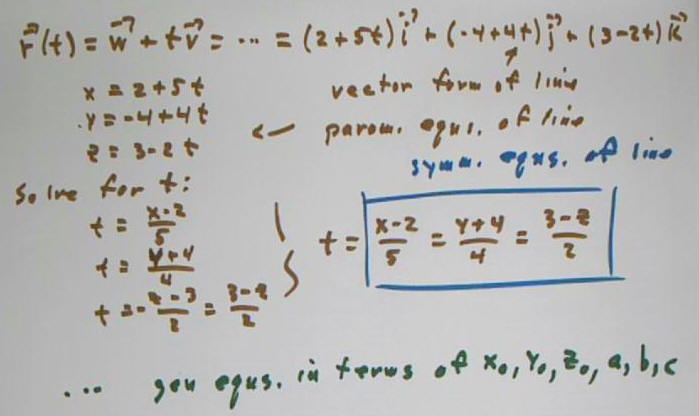 r⃗(t) = w⃗ + t v⃗ = ... = (2+5t) i⃗ + (-4+4t) j⃗ + (3-2t) k⃗
x = 2+5t
vector form of line
y = -4+4t
← param. eqns. of line
z = 3-2t
symm. eqns. of line
Solve for t:
t = (x-2)/5
t = (y+4)/4
t = -(z-3)/2 = (3-z)/2
t = (x-2)/5 = (y+4)/4 = (3-z)/2
... gen eqns. in terms of x₀, y₀, z₀, a, b, c